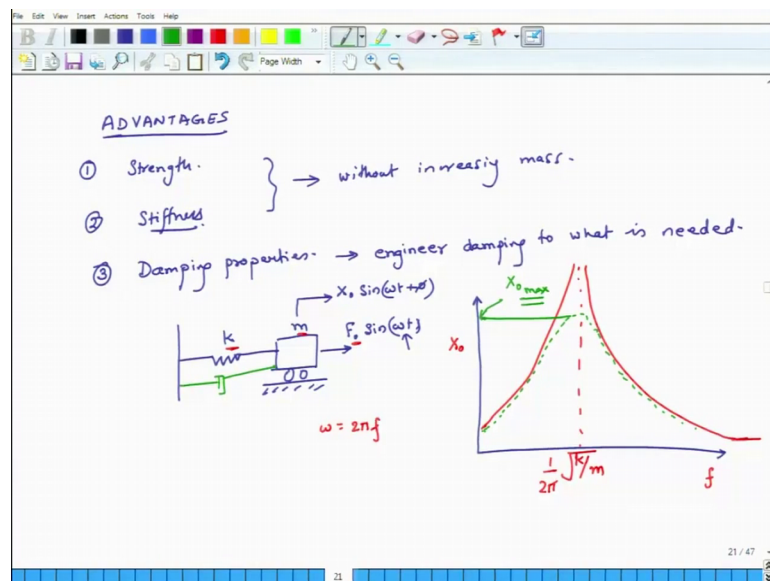 File Edit View Insert Actions Tools Help
B I
Page Width
ADVANTAGES
① Strength.
} → without increasiy mass.
② Stiffness.
③ Damping properties. → engineer damping to what is needed.
X₀ sin(ωt+φ)
k
m
F₀ sin(ωt)
ω = 2πf
X₀ max
X₀
1/2π √k/m
f
21 / 47
21